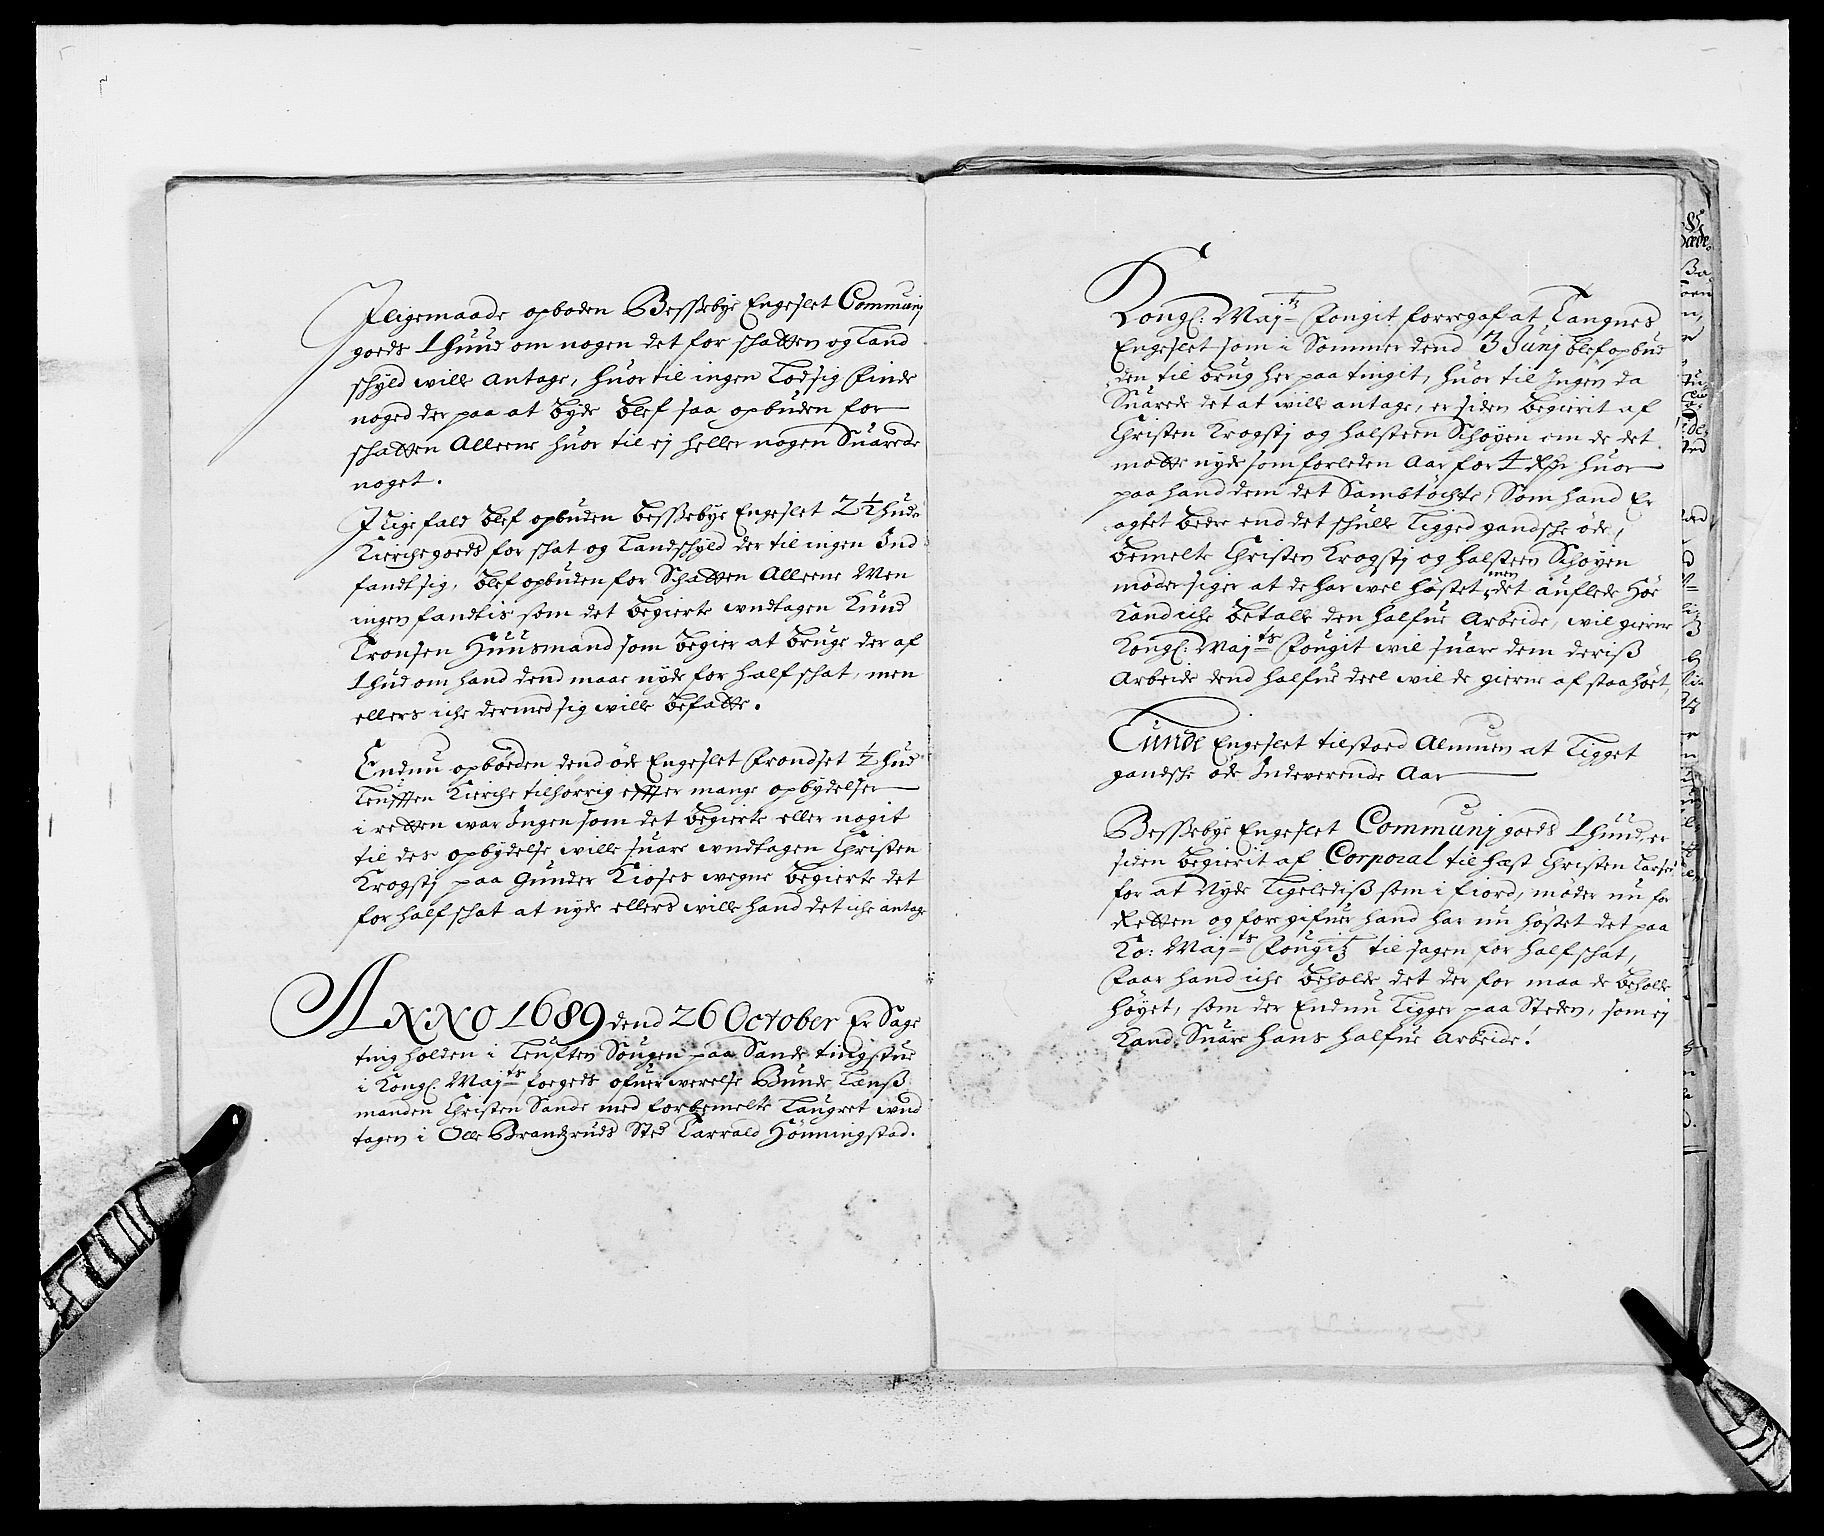 Iligemaade opboden Bessebye Engeslet Communj
goeds 1 huud om nogen det for schatten og Land
schyld wille antage, huor til ingen Lod sig finde
noged der paa at byde blef saa opbuden for
schatten Alleene huor til ej heller nogen Suarede
noget.
I lige fald blef opbuden bessebye Engeslet 2½ hude
Kierchegoeds for schat og Landschyld der til ingen Ind
fandt sig, blef opbuden for Schatten Alleene Men
ingen fandtis som det begierte undtagen Knud
Tronsen Huusmand som begier at bruge der af
1 hud om hand dend maae nyde for half schat, men
ellers iche dermed sig wille befatte.
Endnu opboeden dend øde Engeslet Frondset ½ hud
Teufften Kierche tilhørrig effter mange opbydelser
i retten war Ingen som det begierte eller nogit
til des opbydelse wille suare undtagen Christen
Krogstj paa Gunder Kioses wegne begierte det
for half schat at nyde ellers wille hand det iche antage
ANNO 1689 dend 26 October Er Sage
ting holden i Teuften Sougen paa Sande tingstue
i Kongl. Maj.ts foegeds ofuerwerelse Bunde Lænss
manden Christen Sande med forbemelte Laugret und
tagen i Olle Brandzruds Sted Tarrald Hönningstad.
Kongl: Maj.tz Fougit forregaf at Langnes
Engeslet som i Sommer dend 3 Junj blef opbud
den til brug her paa tingit, huor til Ingen da
Suarede det at wille antage, er siden begierit af
Christen Krogstj og halsteen Schøyen om de det
motte nyde som forleden Aar for 4 Rdr huor
paa hand dem det Sambtöchte, Som hand Er
agtet bedre end det schulle Ligged gandsche øde,
bemelte Christen Krogstj og halsteen Schøyen
møder siger at de har wel høstet men det auflede Høe
Kand iche betalle den halfue Arbeide, wil gierne
Kongl: Maj.ts Fougit wil suare dem deriss
Arbeide dend halfue deel wil de gierne af staa höet,
Lunde Engeslet tilstoed Almuen at Ligget
gandsche øde Indeverende Aar
Bessebye Engeslet Communj goeds 1 huud, er
siden begierit af Corporal til hæst Christen Larsen
for at Nyde Ligelediss som i fiord, møder nu for
Retten og foregifuer hand har nu høstet det paa
Ko: Maj.ts Fougitz til sagen for half schat,
Faar hand iche beholde det der for maa de beholde
høyet, som der Endnu Ligger paa Steden, som ej
Kand Suare hans halfue Arbeide!